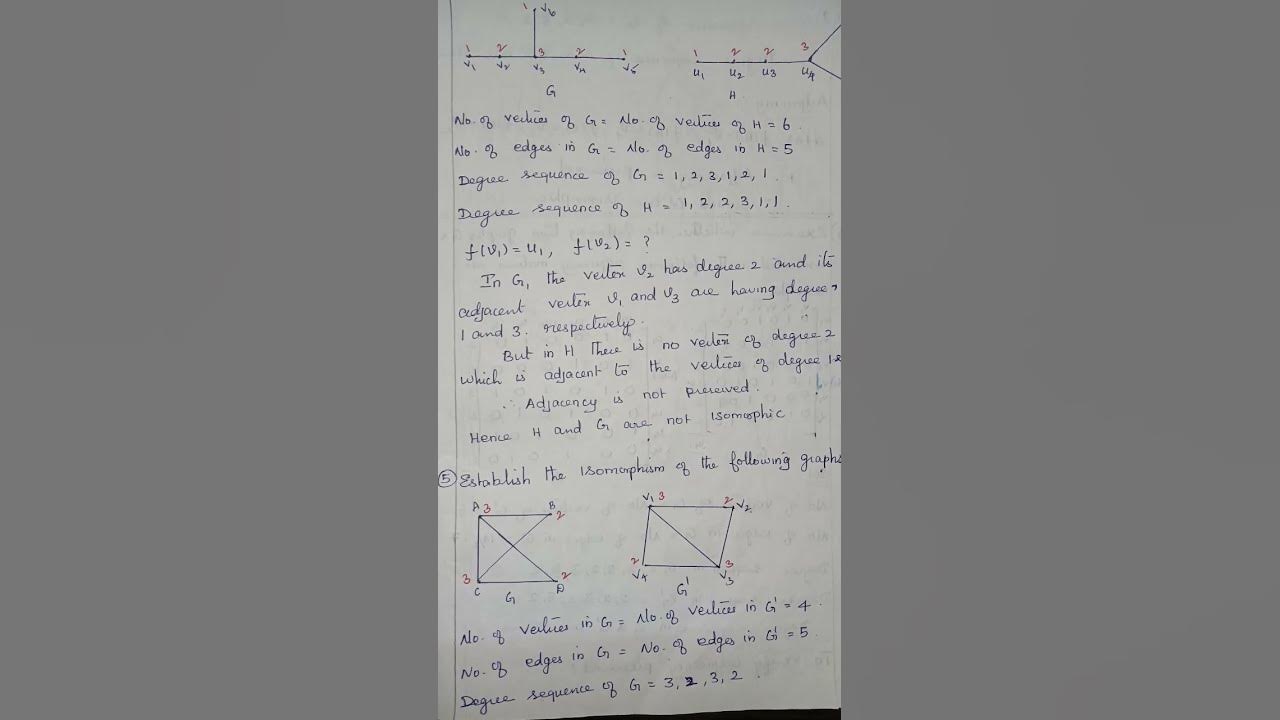 1 V6
1 2 3 2 1
V1 V2 V3 V4 V5
G
1 2 2 3
u1 u2 u3 u4
H
No. of vertices of G = No. of vertices of H = 6.
No. of edges in G = No. of edges in H = 5
Degree sequence of G = 1, 2, 3, 1, 2, 1.
Degree sequence of H = 1, 2, 2, 3, 1, 1.
f(v1) = u1, f(v2) = ?
In G, the vertex v2 has degree 2 and its
adjacent vertex v1 and v3 are having degree
1 and 3. respectively.
But in H There is no vertex of degree 2
which is adjacent to the vertices of degree 1
∴ Adjacency is not preserved.
Hence H and G are not isomorphic
5 Establish the isomorphism of the following graphs
A 3 B 2
3 C D 2
G
V1 3 2 V2
2 V4 3 V3
G'
No. of vertices in G = No. of vertices in G' = 4.
No. of edges in G = No. of edges in G' = 5.
Degree sequence of G = 3, 2, 3, 2.